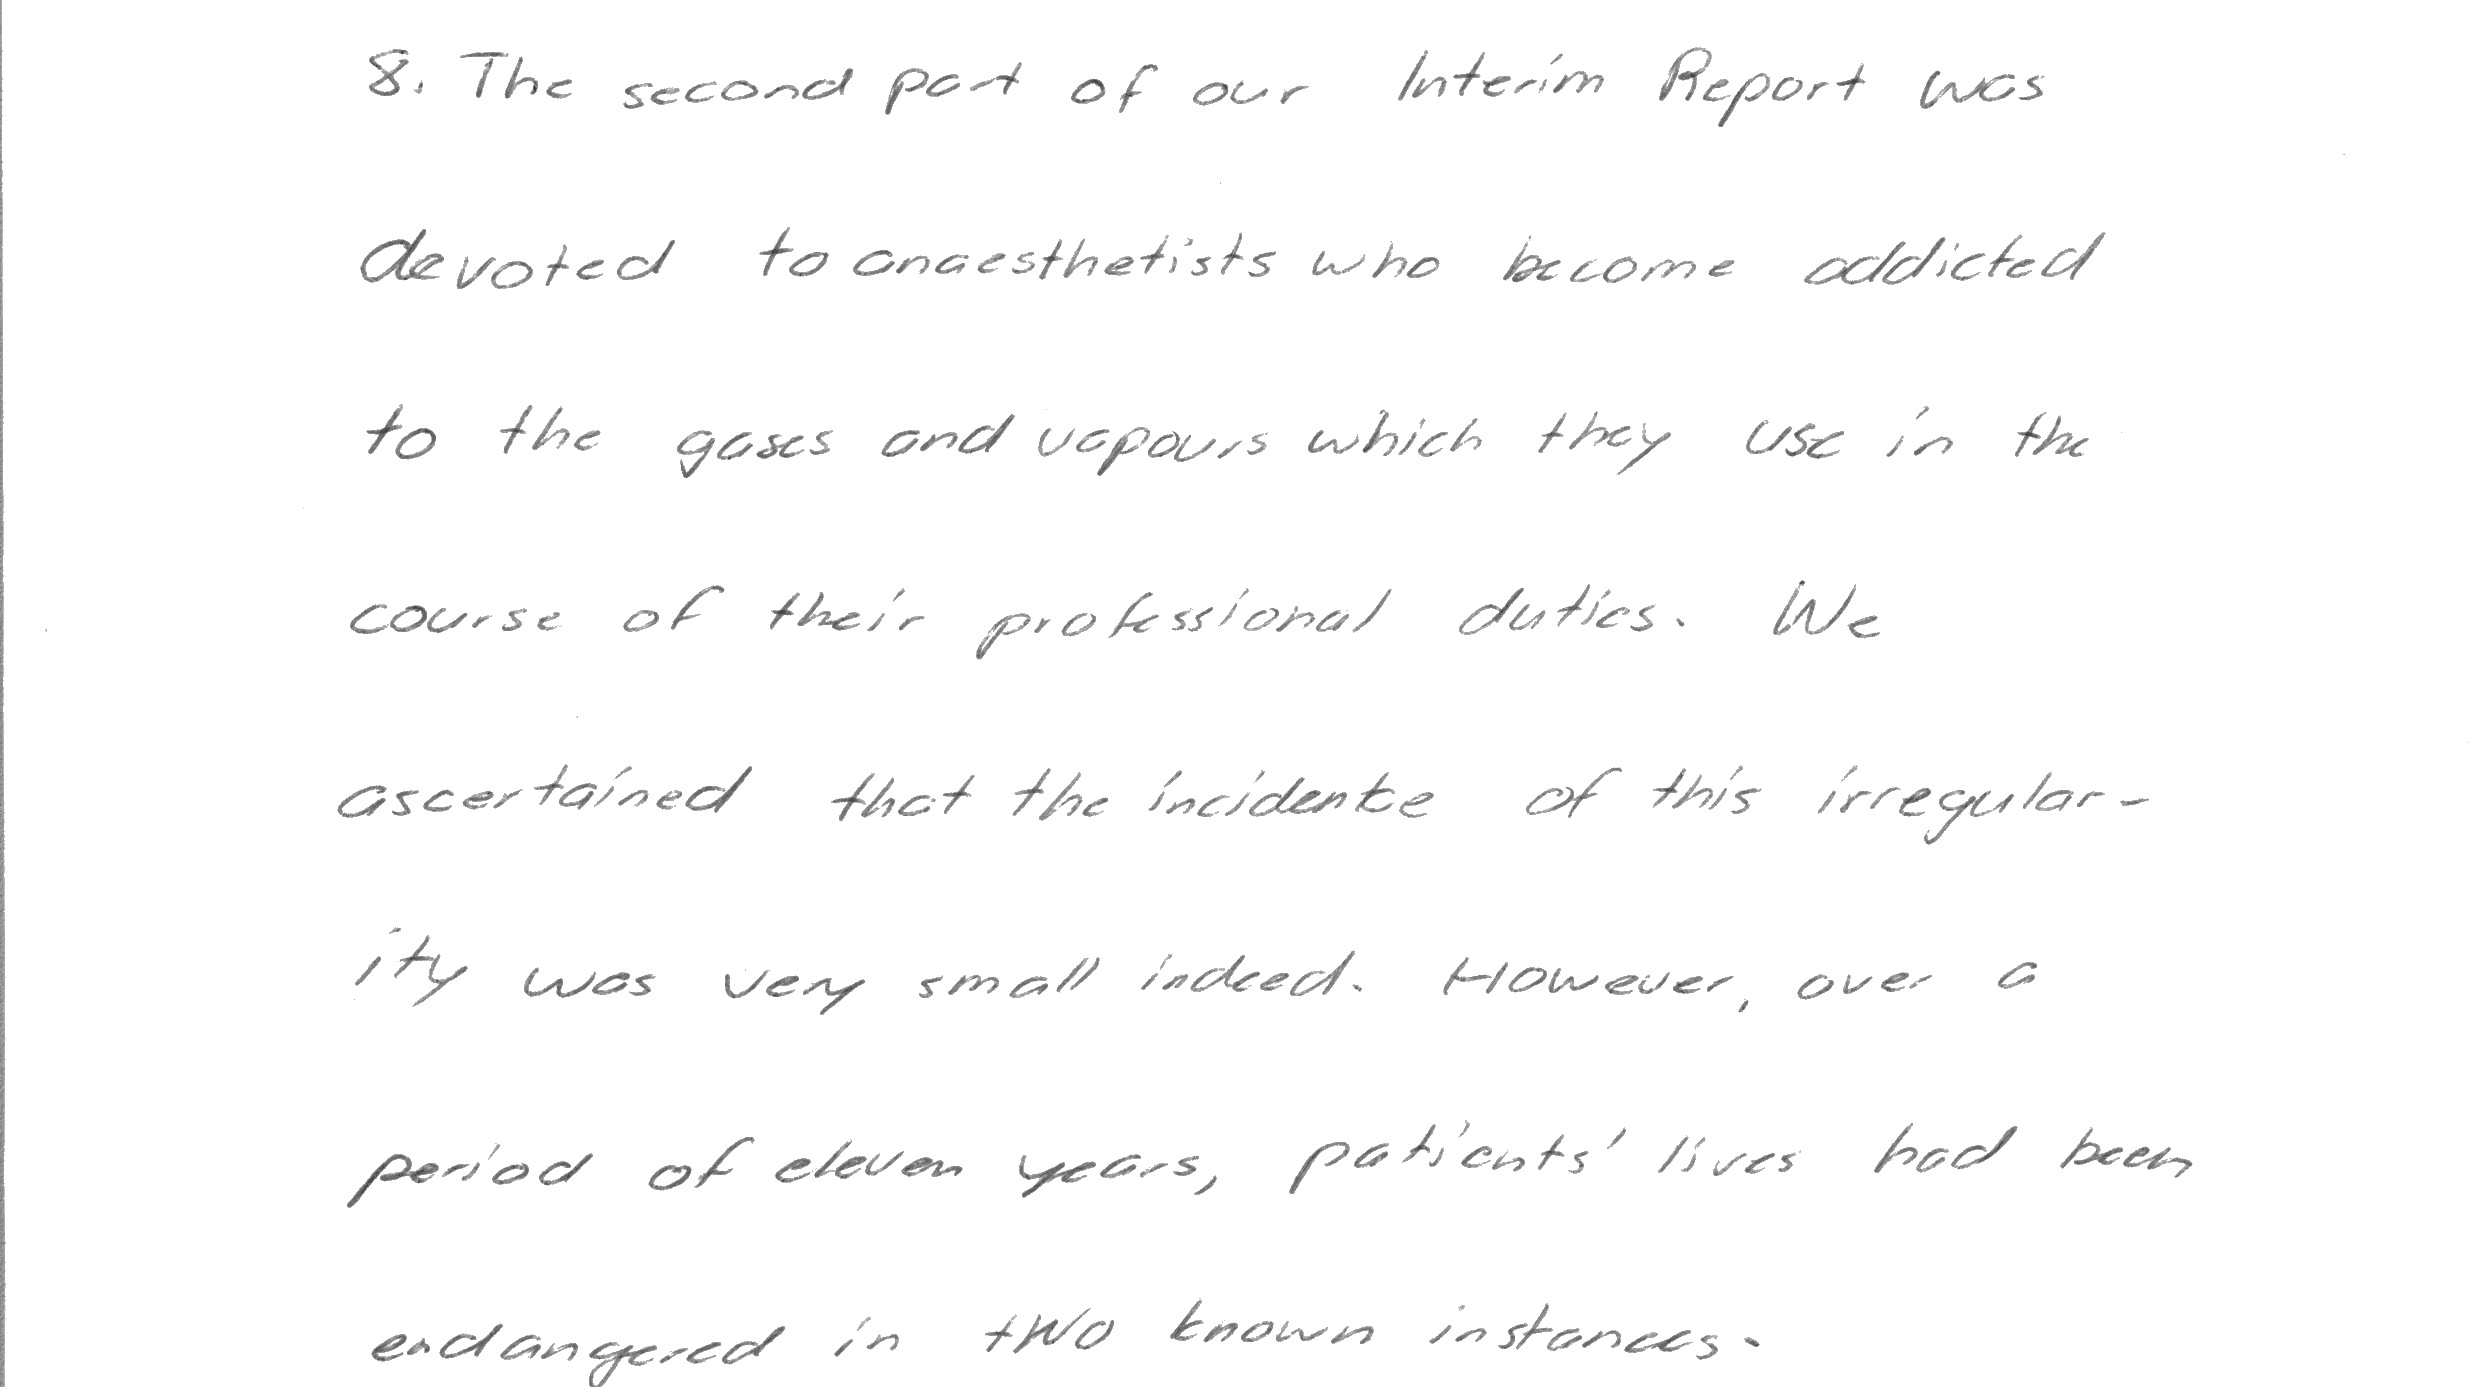 8. The second part of our Interim Report was
devoted to anaesthetists who become addicted
to the gases and vapours which they use in the
course of their professional duties. We
ascertained that the incidence of this irregular-
ity was very small indeed. However, over a
period of eleven years, patients' lives had been
endangered in two known instances.